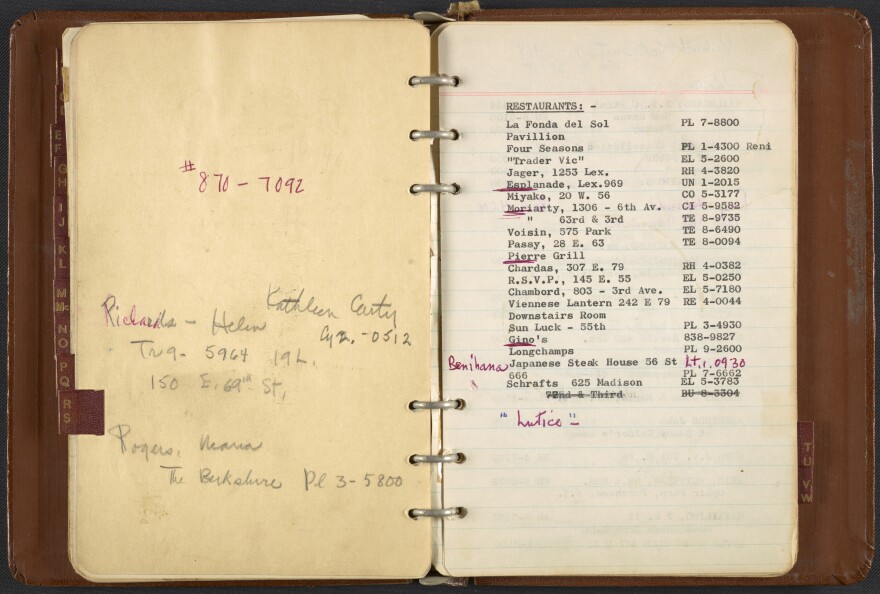 E
F
G
H
I
J
K
L
M
Mc
N O
P
Q
R
S
# 870 - 7092
Kathleen Carty
Richards - Helen
Cy 2. - 0512
Tr 9 - 5964 19L.
150 E. 69th St,
Rogers, Maria
The Berkshire Pl 3 - 5800
RESTAURANTS: -
La Fonda del Sol PL 7-8800
Pavillion
Four Seasons PL 1-4300 Reni
"Trader Vic" EL 5-2600
Jager, 1253 Lex. RH 4-3820
Esplanade, Lex.969 UN 1-2015
Miyako, 20 W. 56 CO 5-3177
Moriarty, 1306 - 6th Av. CI 5-9582
" 63rd & 3rd TE 8-9735
Voisin, 575 Park TE 8-6490
Passy, 28 E. 63 TE 8-0094
Pierre Grill
Chardas, 307 E. 79 RH 4-0382
R.S.V.P., 145 E. 55 EL 5-0250
Chambord, 803 - 3rd Ave. EL 5-7180
Viennese Lantern 242 E 79 RE 4-0044
Downstairs Room
Sun Luck - 55th PL 3-4930
Gino's 838-9827
Longchamps PL 9-2600
Benihana Japanese Steak House 56 St Lt.1.0930
666 PL 7-6662
Schrafts 625 Madison EL 5-3783
72nd & Third BU 8-3304
"Lutice"
T U
V W